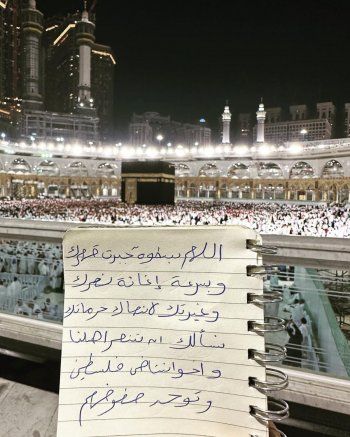 اللهم بسطوة جبروت قهرك
وبسرعة إغاثة نصرك
وغيرتك لانتهاك حرماتك
نسألك ان تنصر اهلنا
واخواننا في فلسطين
وتوحد صفوفهم